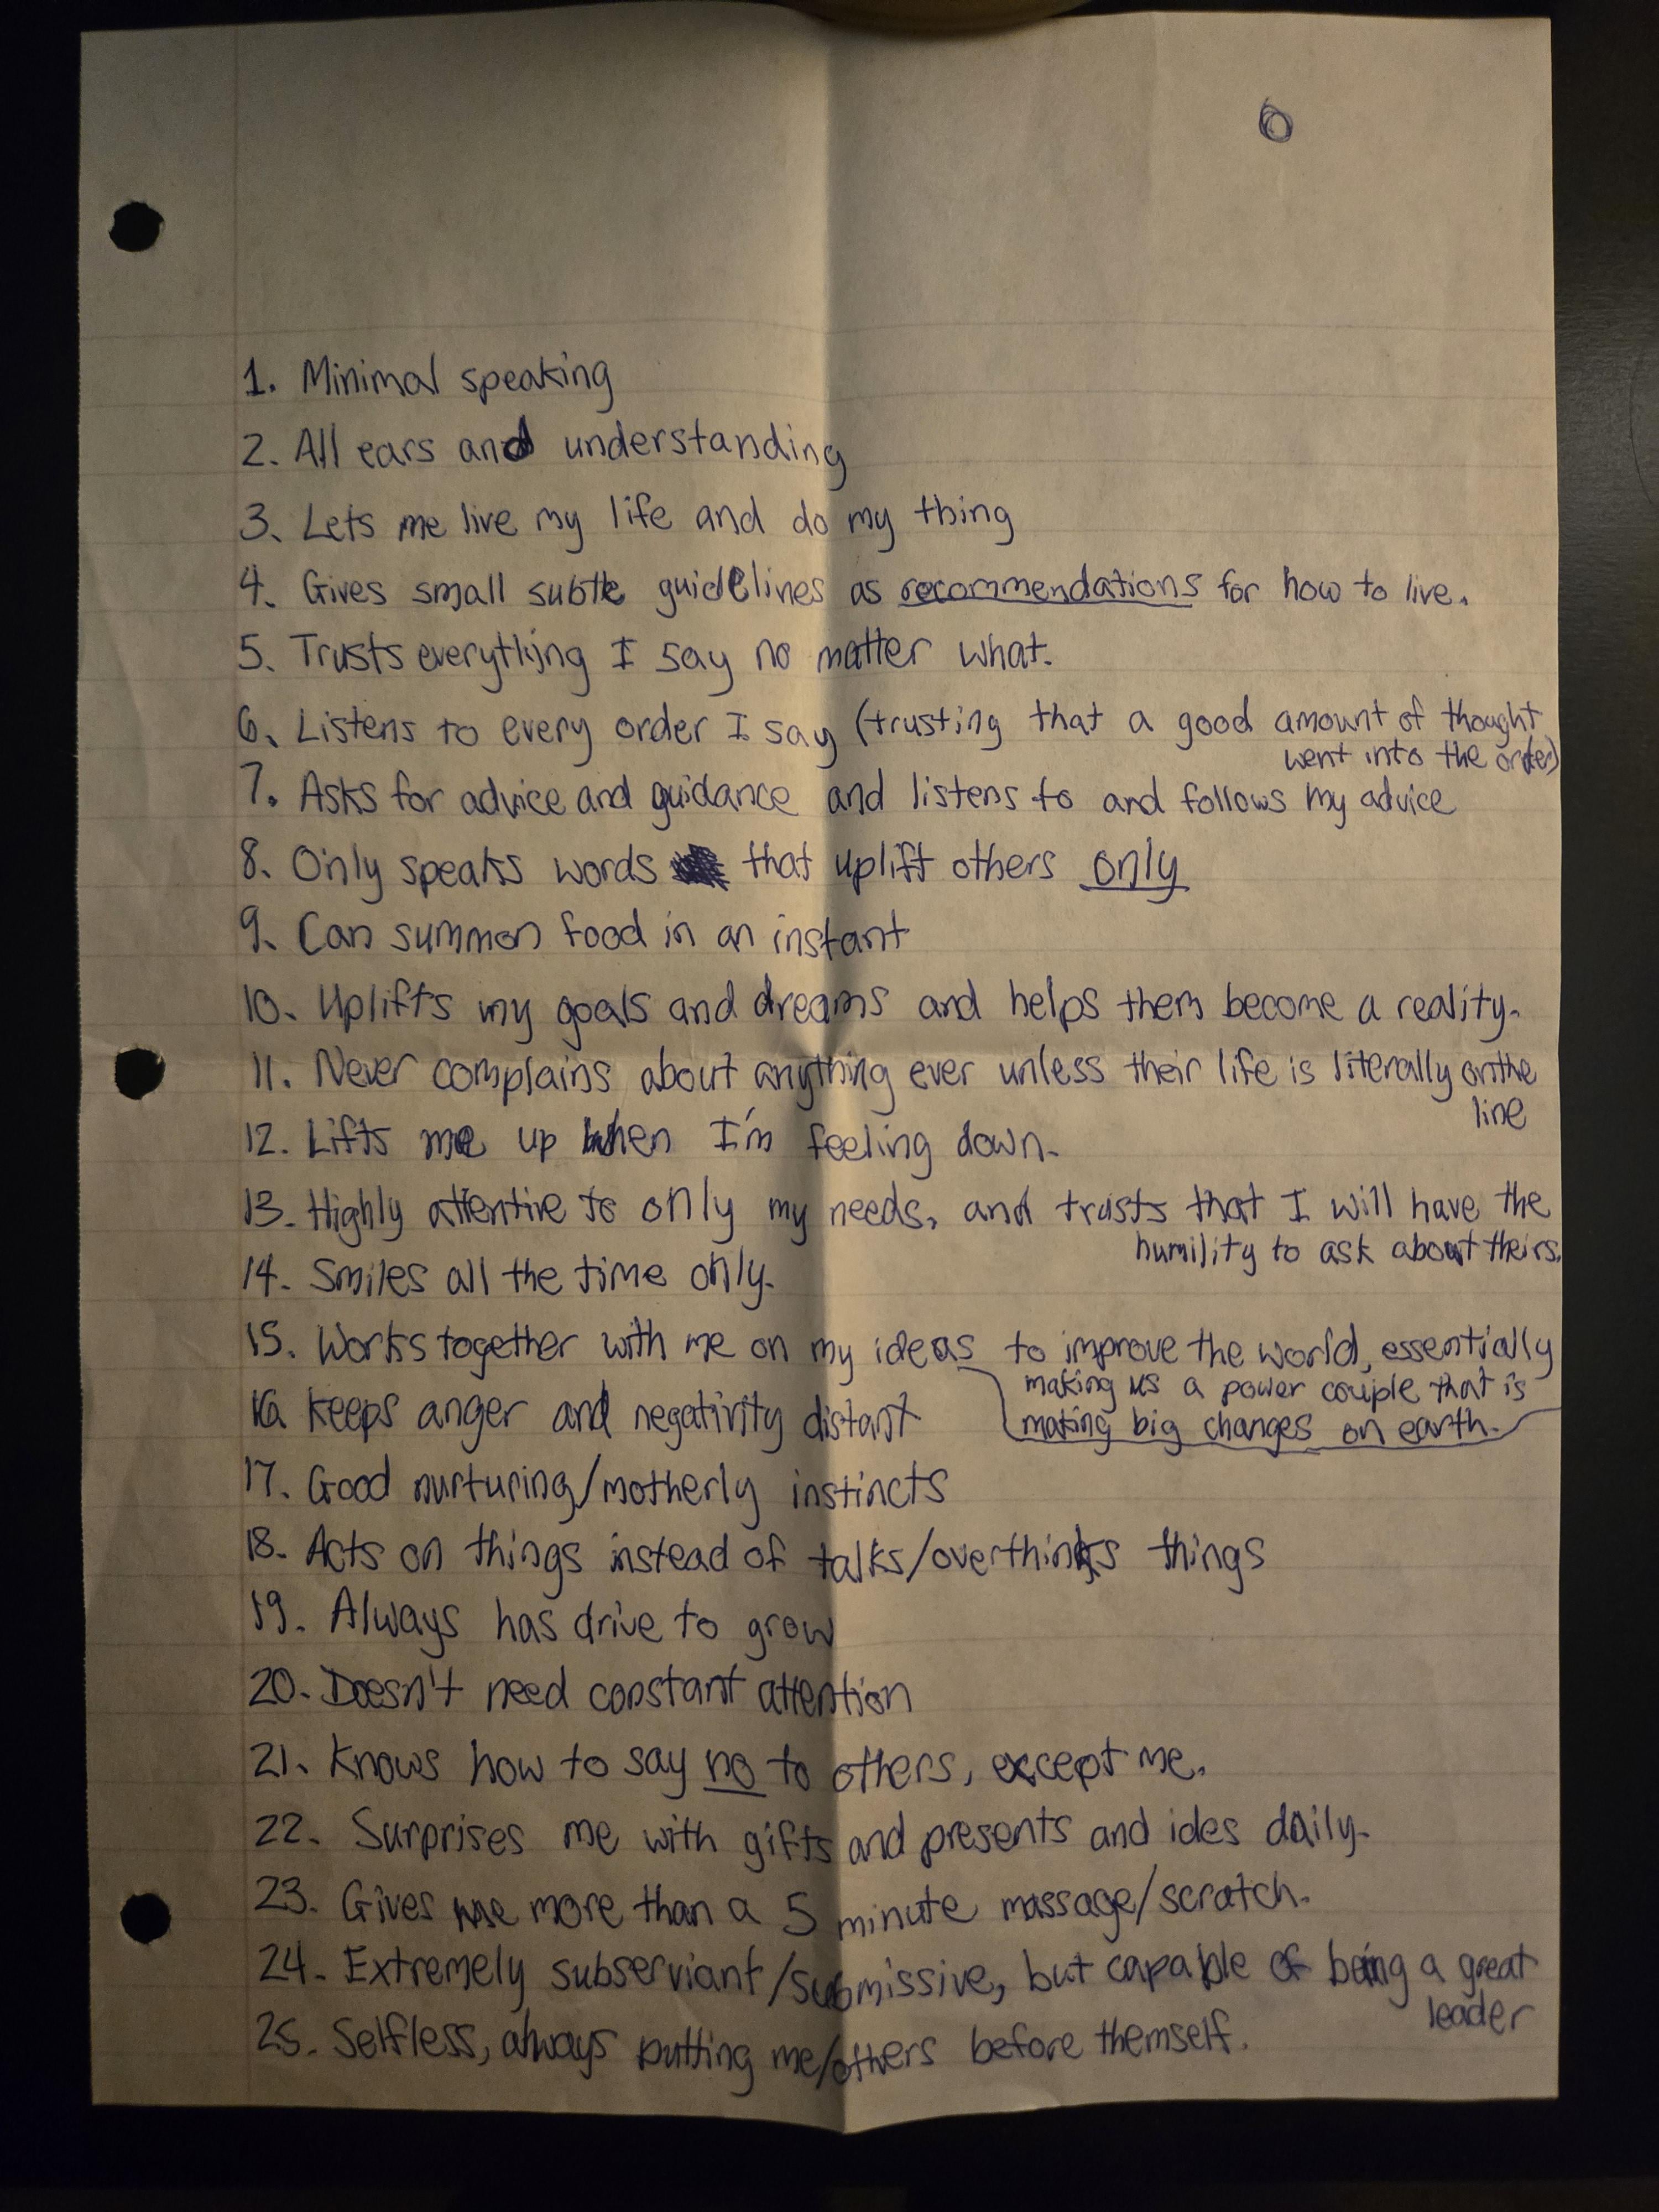 6
1. Minimal speaking
2. All ears and understanding
3. Lets me live my life and do my thing
4. Gives small subtle guidelines as recommendations for how to live.
5. Trusts everything I say no matter what.
6. Listens to every order I say (trusting that a good amount of thought
went into the order)
7. Asks for advice and guidance and listens to and follows my advice
8. Only speaks words that uplift others only
9. Can summon food in an instant
10. Uplifts my goals and dreams and helps them become a reality.
11. Never complains about anything ever unless their life is literally on the
line
12. Lifts me up when I'm feeling down.
13. Highly attentive to only my needs, and trusts that I will have the
humility to ask about theirs.
14. Smiles all the time only.
15. Works together with me on my ideas to improve the world, essentially
making us a power couple that is
making big changes on earth.
16. Keeps anger and negativity distant
17. Good nurturing/motherly instincts
18. Acts on things instead of talks/overthinks things
19. Always has drive to grow
20. Doesn't need constant attention
21. Knows how to say no to others, except me.
22. Surprises me with gifts and presents and ides daily.
23. Gives me more than a 5 minute massage/scratch.
24. Extremely subserviant/submissive, but capable of being a great
leader
25. Selfless, always putting me/others before themself.